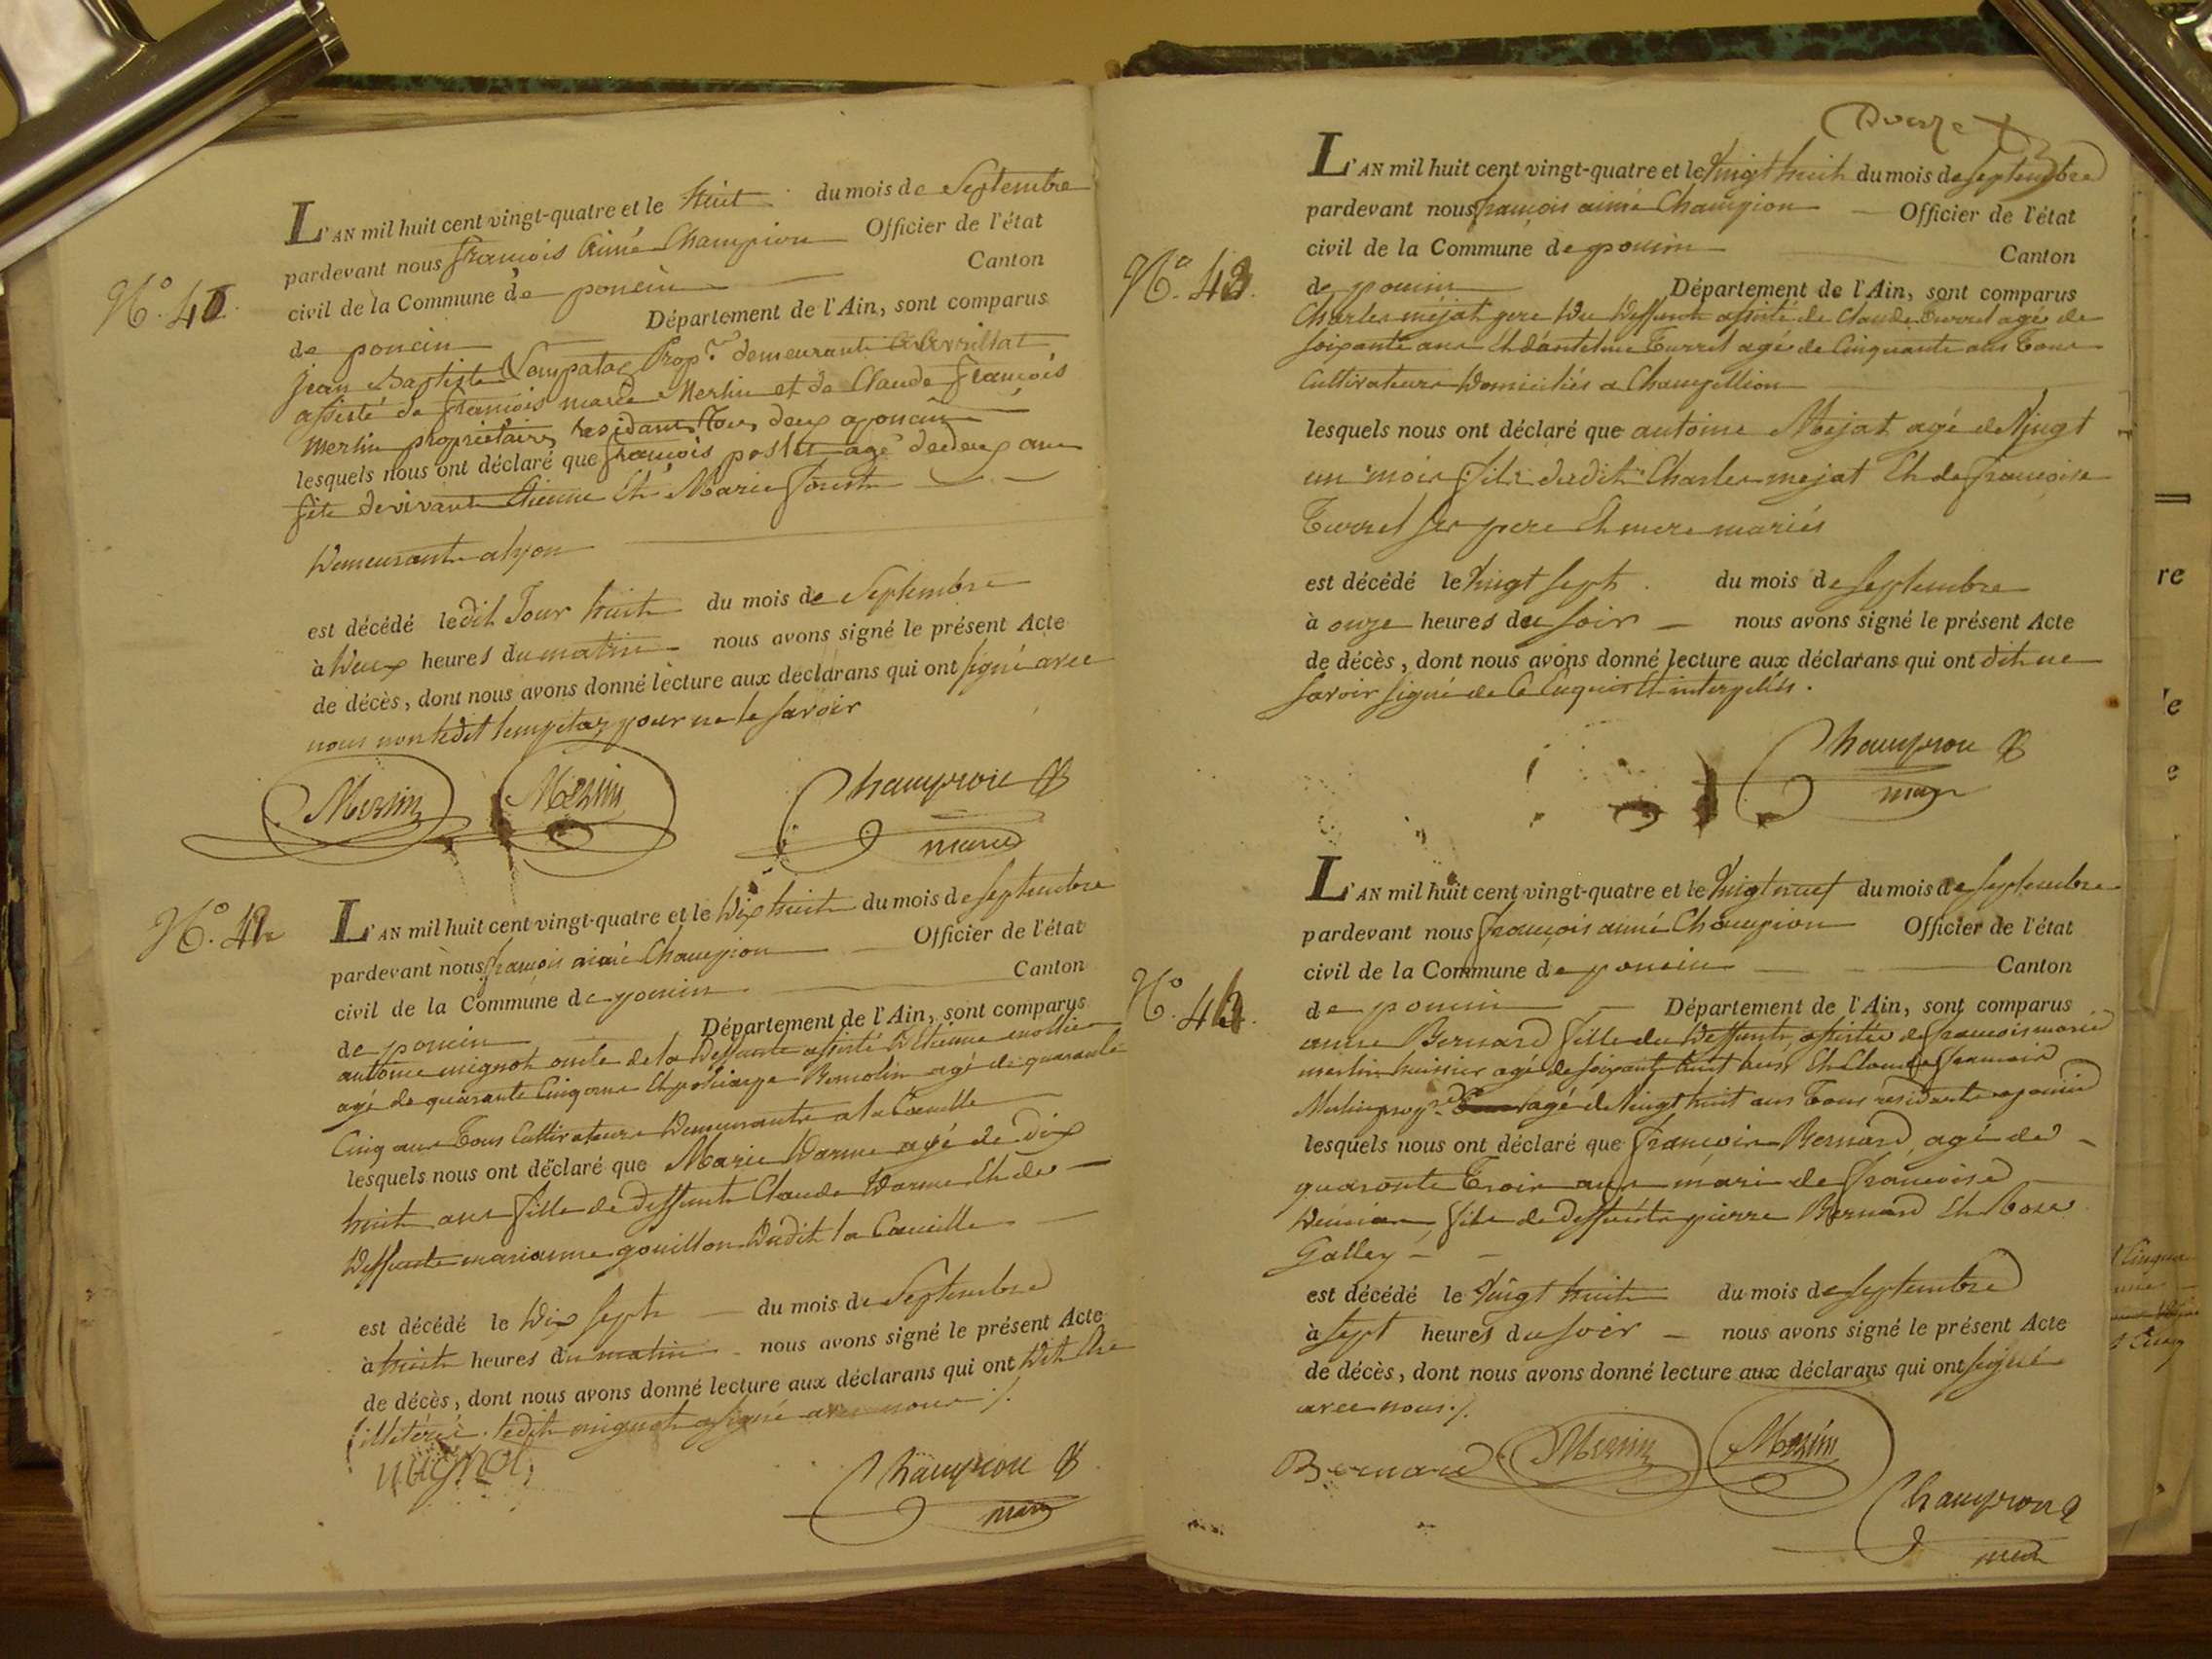 N.° 41.
L'AN mil huit cent vingt-quatre et le huit du mois de Septembre
pardevant nous françois Aimé Champion Officier de l'état
civil de la Commune de poncin Canton
de poncin Département de l'Ain, sont comparus
Jean Baptiste Prop.re demeurant a
assisté de françois marie Merlin et de Claude françois
Merlin propriétaires residant tous deux a poncin
lesquels nous ont déclaré que françois agé de deux ans
fils de vivants Etienne Et Marie
Demeurante a lyon
est décédé ledit Jour huit du mois de Septembre
à Deux heures du matin nous avons signé le présent Acte
de décès, dont nous avons donné lecture aux déclarans qui ont signé avec
nous non ledit pour ne le savoir
Merlin Merlin Champion
maire
N.° 42
L'AN mil huit cent vingt-quatre et le Dix huit du mois de septembre
pardevant nous françois aimé Champion Officier de l'état
civil de la Commune de poncin Canton
de poncin Département de l'Ain, sont comparus
antoine mignot oncle de la Deffunte assisté D'Etienne
agé de quarante Cinq ans Et policarpe agé de quarante
Cinq ans Tous Cultivateurs Demeurants a la Caville
lesquels nous ont déclaré que Marie Darme agé de Dix
huit ans fille de Deffunt Claude Darme Et de
Deffunte marianne gouillon Dudit la Caville
est décédé le Dix sept du mois de Septembre
à huit heures du matin nous avons signé le présent Acte
de décès, dont nous avons donné lecture aux déclarans qui ont Dit
illitérés. ledit mignot a signé avec nous ./.
mignot
Champion
maire
L'AN mil huit cent vingt-quatre et le Vingt huit du mois de septembre
pardevant nous françois aimé Champion Officier de l'état
civil de la Commune de poncin Canton
N.° 43.
de poncin Département de l'Ain, sont comparus
Charles méjat pere Du Deffunt assisté de Claude Turrel agé de
soixante ans Et d'anteleme Turrel agé de Cinquante ans Tous
Cultivateurs Domiciliés a Champillion
lesquels nous ont déclaré que antoine Mejat agé de Vingt
un mois fils dudit Charles mejat Et de françoise
Turrel ses pere Et mere mariés
est décédé le Vingt sept du mois de septembre
à onze heures du soir nous avons signé le présent Acte
de décès, dont nous avons donné lecture aux déclarans qui ont dit ne
savoir signé de Ce Enquis Et interpellés.
Champion
maire
L'AN mil huit cent vingt-quatre et le Vingt neuf du mois de septembre
pardevant nous françois aimé Champion Officier de l'état
civil de la Commune de poncin Canton
N.° 44.
de poncin Département de l'Ain, sont comparus
anne Bernard fille du Deffunt, assistée de françois marie
merlin huissier agé de soixante huit ans Et Claude françois
Merlin prop.re agé de Vingt huit ans Tous residents a poncin
lesquels nous ont déclaré que françois Bernard agé de
quarante Trois ans mari de françoise
fils de deffunts pierre Bernard Et Rose
Galley
est décédé le Vingt huit du mois de septembre
à sept heures du soir nous avons signé le présent Acte
de décès, dont nous avons donné lecture aux déclarans qui ont signé
avec nous ./.
Bernard Merlin Merlin
Champion
maire
re